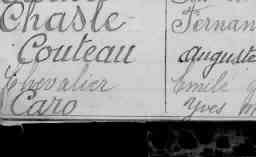 Chasle Fernan
Couteau Auguste
Chevalier Emile
Caro Yves